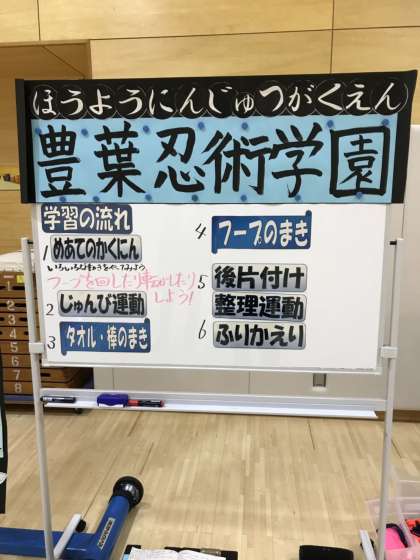 ほうようにんじゅつがくえん
豊葉忍術学園
学習の流れ
1 めあてのかくにん
いろいろな動きをやってみよう
フープを回したり転がしたり
しよう!
2 じゅんび運動
3 タオル・棒のまき
4 フープのまき
5 後片付け
整理運動
6 ふりかえり
1
2
3
4
5
6